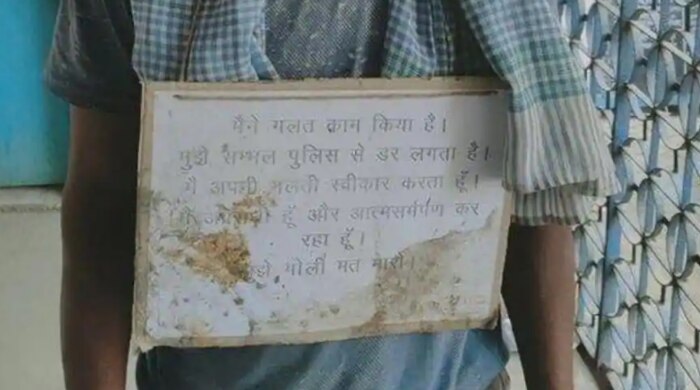 मैंने गलत काम किया है।
मुझे सम्भल पुलिस से डर लगता है।
मै अपनी गलती स्वीकार करता हूँ।
हूँ और आत्मसर्मपण कर
रहा हूँ।
मुझे गोली मत मारो।